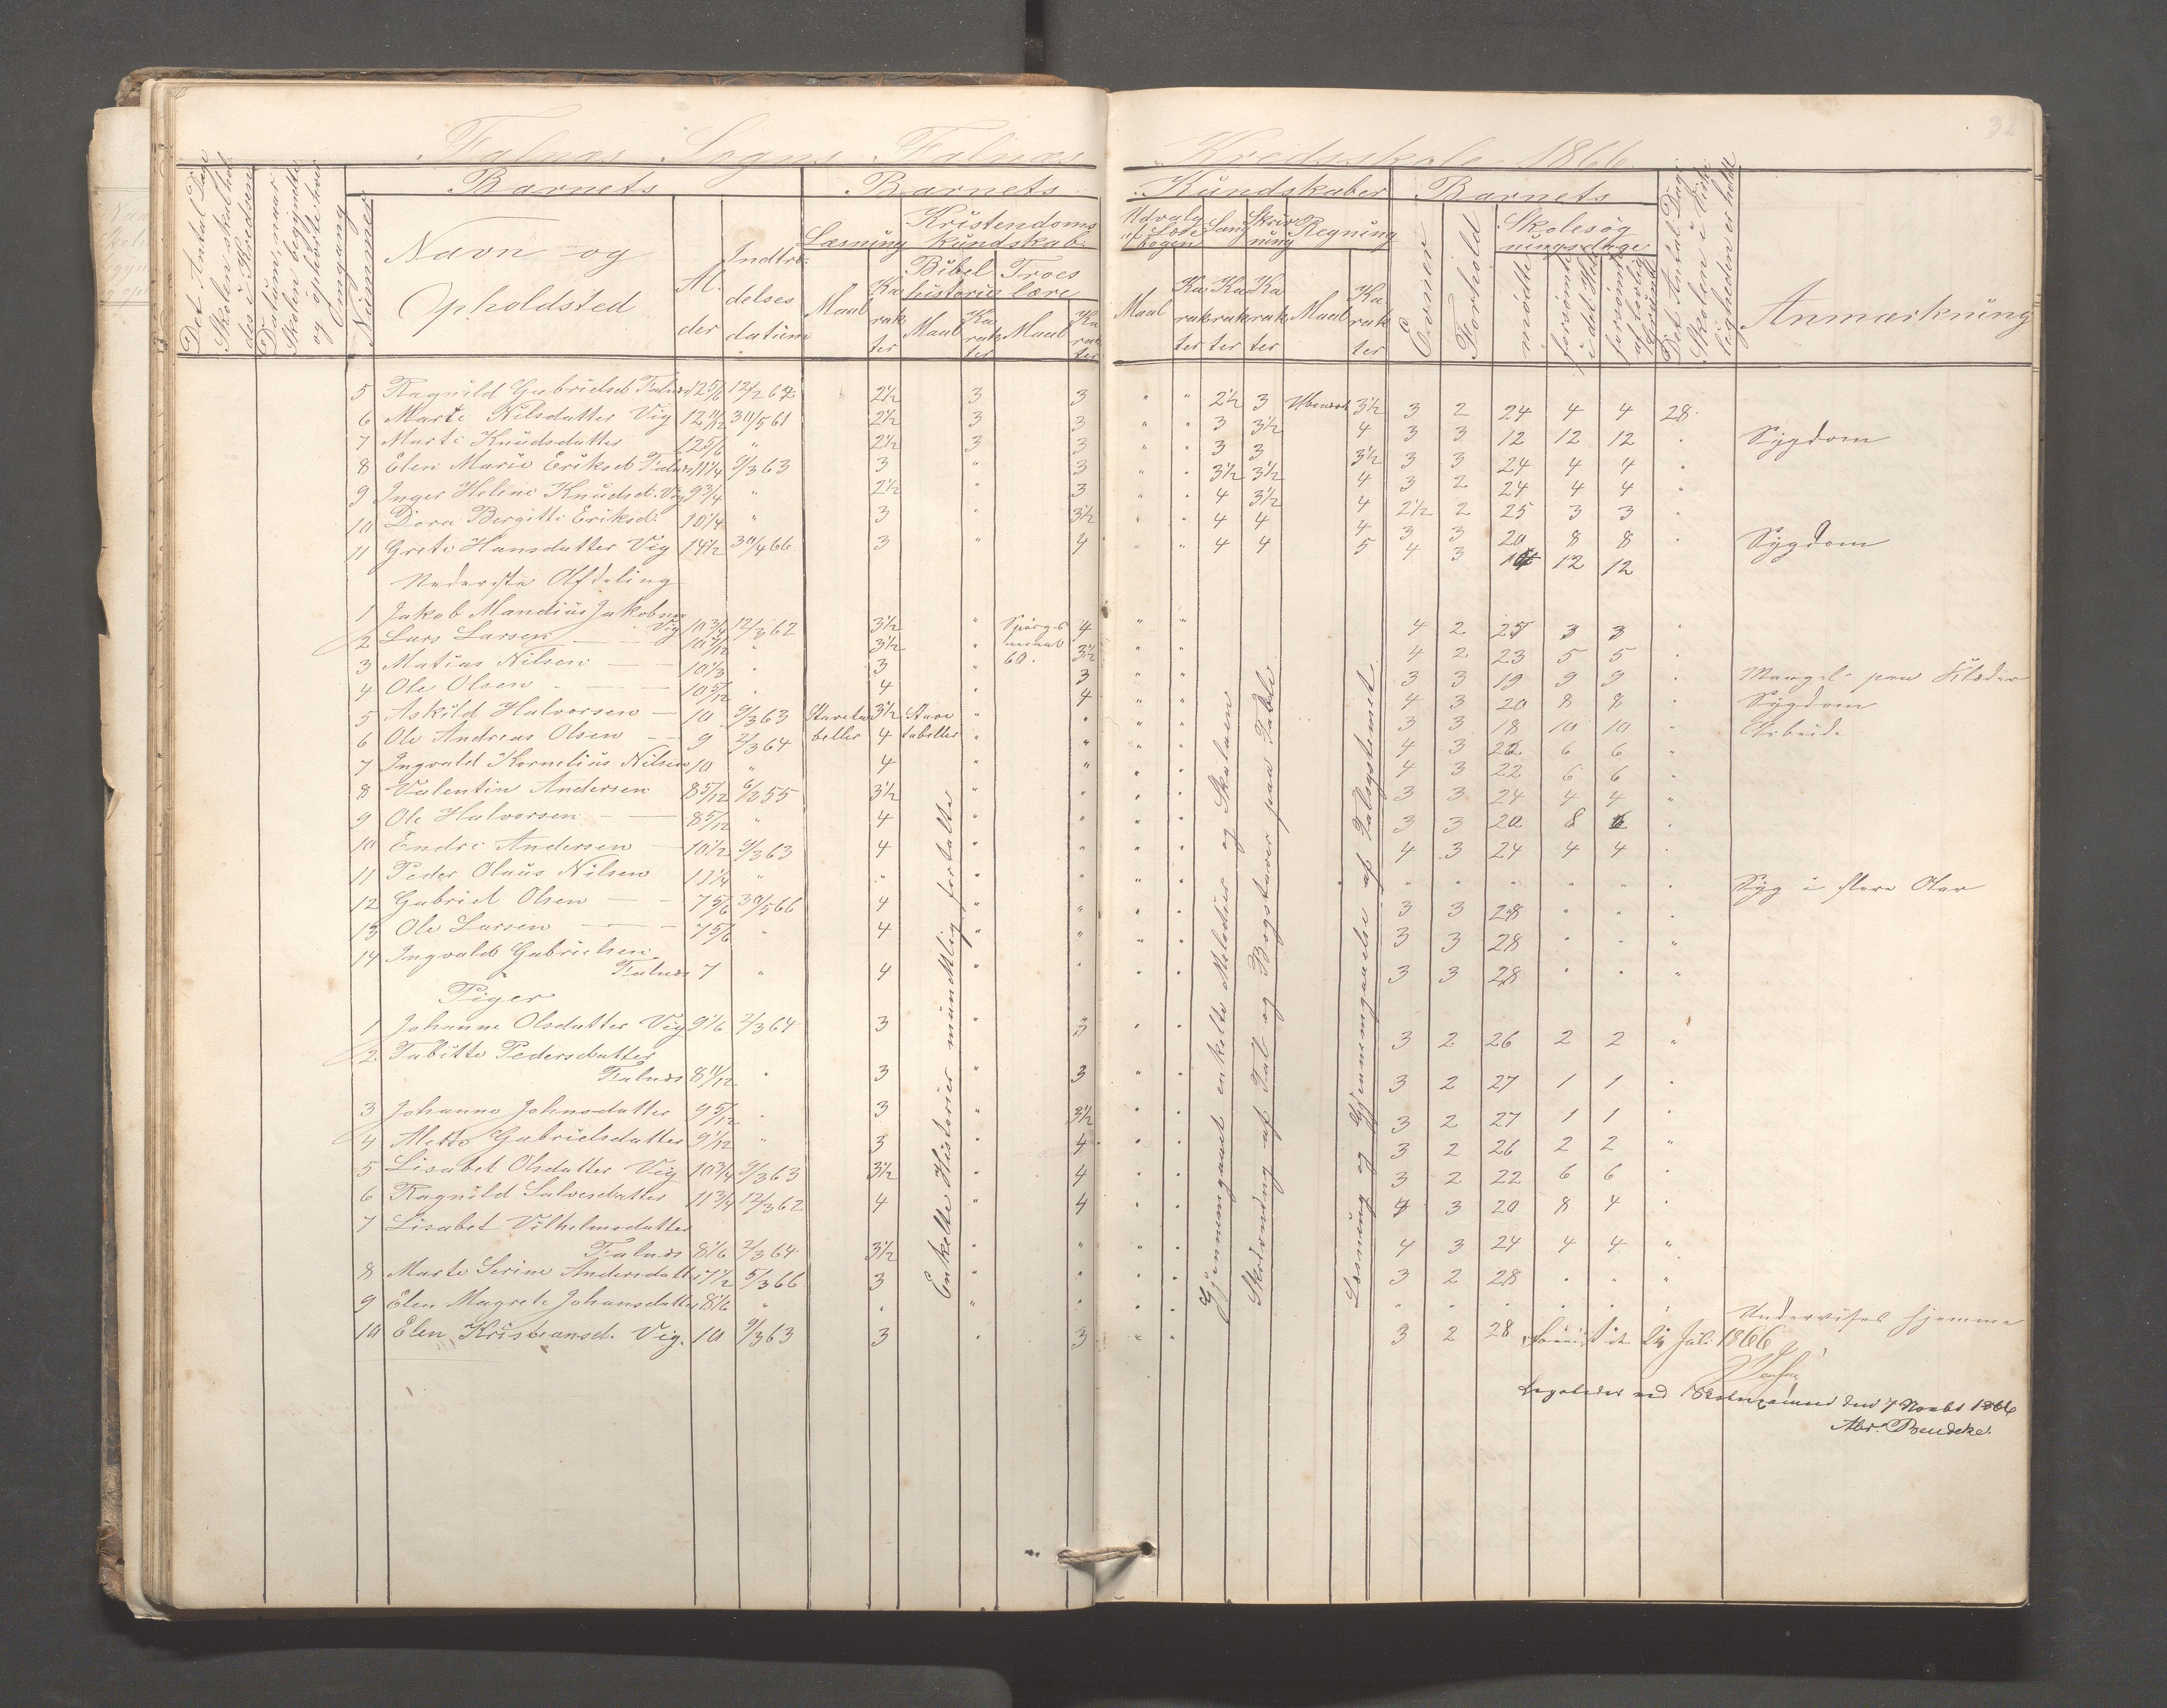 Falnes Sogns Falnes Kredsskole 1866
32
Det Antal Dage Skolen skal holdes i Kredsen
Datum, naar Skolen begyndte og ophörte hver Omgang
Nummer
Barnets
Navn og Opholdsted
Alder
Indtrædelses datum
Barnets Kundskaber
Læsning
Maal
Karakter
Kristendoms kundskab
Bibelhistorie
Maal
Karakter
Troeslære
Maal
Karakter
Udvalg af Læsebogen
Maal
Karakter
Sang
Karakter
Skrivning
Karakter
Regning
Maal
Karakter
Barnets
Evner
Forhold
Skolesøgningsdage
mødte
forsømte i det Hele
forsømte af lovlig Grund
Det Antal Dage Skolen i Virkeligheden er holdt
Anmærkning
5 Ragnild Gabrielsd. Falnes 12 5/6 12/2 62 2½ 3 3 " " 2½ 3 Ubenævnt 3½ 3 2 24 4 4 28
6 Marte Nilsdatter Vig 12 11/12 30/5 61 2½ 3 3 " " 3 3½ 4 3 3 12 12 12 " Sygdom
7 Marte Knudsdatter 12 5/6 " 2½ 3 3 " " 3 3 3½ 3 3 24 4 4 "
8 Elen Marie Eriksd. Falnes 11¼ 9/3 63 3 " 3 " " 3½ 3½ 4 3 2 24 4 4 "
9 Inger Helene Knudsd. Vig 9¾ " 2½ " 3 " " 4 3½ 4 2½ 2 25 3 3 "
10 Dora Bergitte Eriksd. 10¼ " 3 " 3½ " " 4 4 4 3 3 20 8 8 " Sygdom
11 Grete Hansdatter Vig 14½ 30/4 66 3 " 4 " " 4 4 5 4 3 12 12
Nederste Afdeling
1 Jakob Mandius Jakobsen Vig 10¾ 12/3 62 3½ " Spörgsmaal 60. 4 " " 4 2 25 3 3 "
2 Lars Larsen 10 5/12 " 3½ " 3½ " " 4 2 23 5 5 "
3 Matias Nilsen 10⅓ " 3 " 3 " " 3 3 19 9 9 " Mangel paa Klæder
4 Ole Olsen 10 5/12 " 4 " 4 " " 4 3 20 8 8 " Sygdom
5 Askild Halvorsen 10 9/3 63 Stavetabeller 3½ Stavetabeller " " " 3 3 18 10 10 " Arbeide
6 Ole Andreas Olsen 9 2/3 64 4 " " " " 4 3 22 6 6 "
7 Ingvald Kornelius Nilsen 10 " 4 " " " " 4 3 22 6 6 "
8 Valentin Andersen 8 5/12 6/3 55 3½ " " " " 3 3 24 4 4 "
9 Ole Halvorsen 8 5/12 " 4 " " " " 3 3 20 8 6 "
10 Endre Andersen 10½ 9/3 63 4 " " " " 4 3 24 4 4 "
11 Peder Olaus Nilsen 11¼ " " " " " " " " " " " " Syg i flere Aar
12 Gabriel Olsen 7 5/6 30/5 66 4 " " " " 3 3 28 " " "
13 Ole Larsen 7 5/6 " 4 " " " " 3 3 28 " " "
14 Ingvald Gabrielsen Falnes 7 " 4 " " " " 3 3 28 " " "
Piger
1 Johanne Olsdatter Vig 9⅙ 2/3 64 3 " 3 " " 3 2 26 2 2 "
2 Tabitte Pedersdatter Falnes 8 11/12 " 3 " 3 " " 3 2 27 1 1 "
3 Johanne Johnsdatter 9 5/12 " 3 " 3½ " " 3 2 27 1 1 "
4 Mette Gabrielsdatter 9 1/12 " 3 " 4 " " 3 2 26 2 2 "
5 Lisabet Olsdatter Vig 10¾ 9/3 63 3½ " 4 " " 3 2 22 6 6 "
6 Ragnild Salvesdatter 11¾ 12/3 62 4 " 4 " " 4 3 20 8 4 "
7 Lisabet Vilhelmsdatter Falnes 8⅙ 2/3 64 3½ " " " " 4 3 24 4 4 "
8 Marte Serine Andersdatter 7½ 5/3 66 3 " " " " 3 2 28 " " "
9 Elen Magrete Johansdatter 8⅙ " " " " " " " " " " " " Undervises hjemme
10 Elen Kristiansd. Vig. 10 9/3 63 3 " 3 " " 3 2 28
Enkelte Historier mundtlig fortalte
Gjennemgaaet enkelte Melodier og Skalaen
Skrivning af Tal og Bogstaver paa Tavle
Læsning og Gjennemgaaelse af Talsystemet
den 24 Juli 1866
ved Skoleexamen den 7 Novbr 1866
Abr. Bendeke.